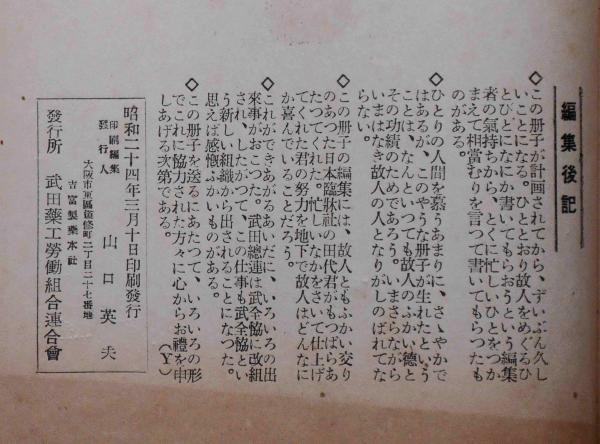 編集後記
◇この册子が計画されてから、ずいぶん久し
いことになる。ひととおり故人をめぐるひ
とびとになにか書いてもらおうという編集
者の氣持ちから、とくに忙しいひとをつか
まえて相當むりを言つて書いてもらつたも
のがある。
◇ひとりの人間を慕うあまりに、さゝやかで
はあるが、このやうな册子が生れたという
ことは、なんといつても故人のふかい德と
その功績のためであろう。いまさらながら
いまはなき故人の人となりがしのばれてな
らない。
◇この册子の編集には、故人ともふかい交り
のあつた日本臨牀社の田代君がもつぱらあ
たつてくれた。忙しいなかをさいて仕上げ
てくれた君の努力を地下で故人はどんなに
か喜んでいることだろう。
◇これができあがるあいだに、いろいろの出
來事がおこつた。武田總連は武全協に改組
され、したがつて、この仕事も武全協とい
う新しい組織から出されることになつた。
思えば感慨ふかいものがある。
◇この册子を送るにあたつて、いろいろの形
でこれに協力された方々に心からお禮を申
しあげる次第である。（Y）
昭和二十四年三月十日印刷發行
印刷編集
發行人 山口英夫
大阪市東區道修町二丁目二十七番地
吉富製藥本社
發行所 武田藥工勞働組合連合會